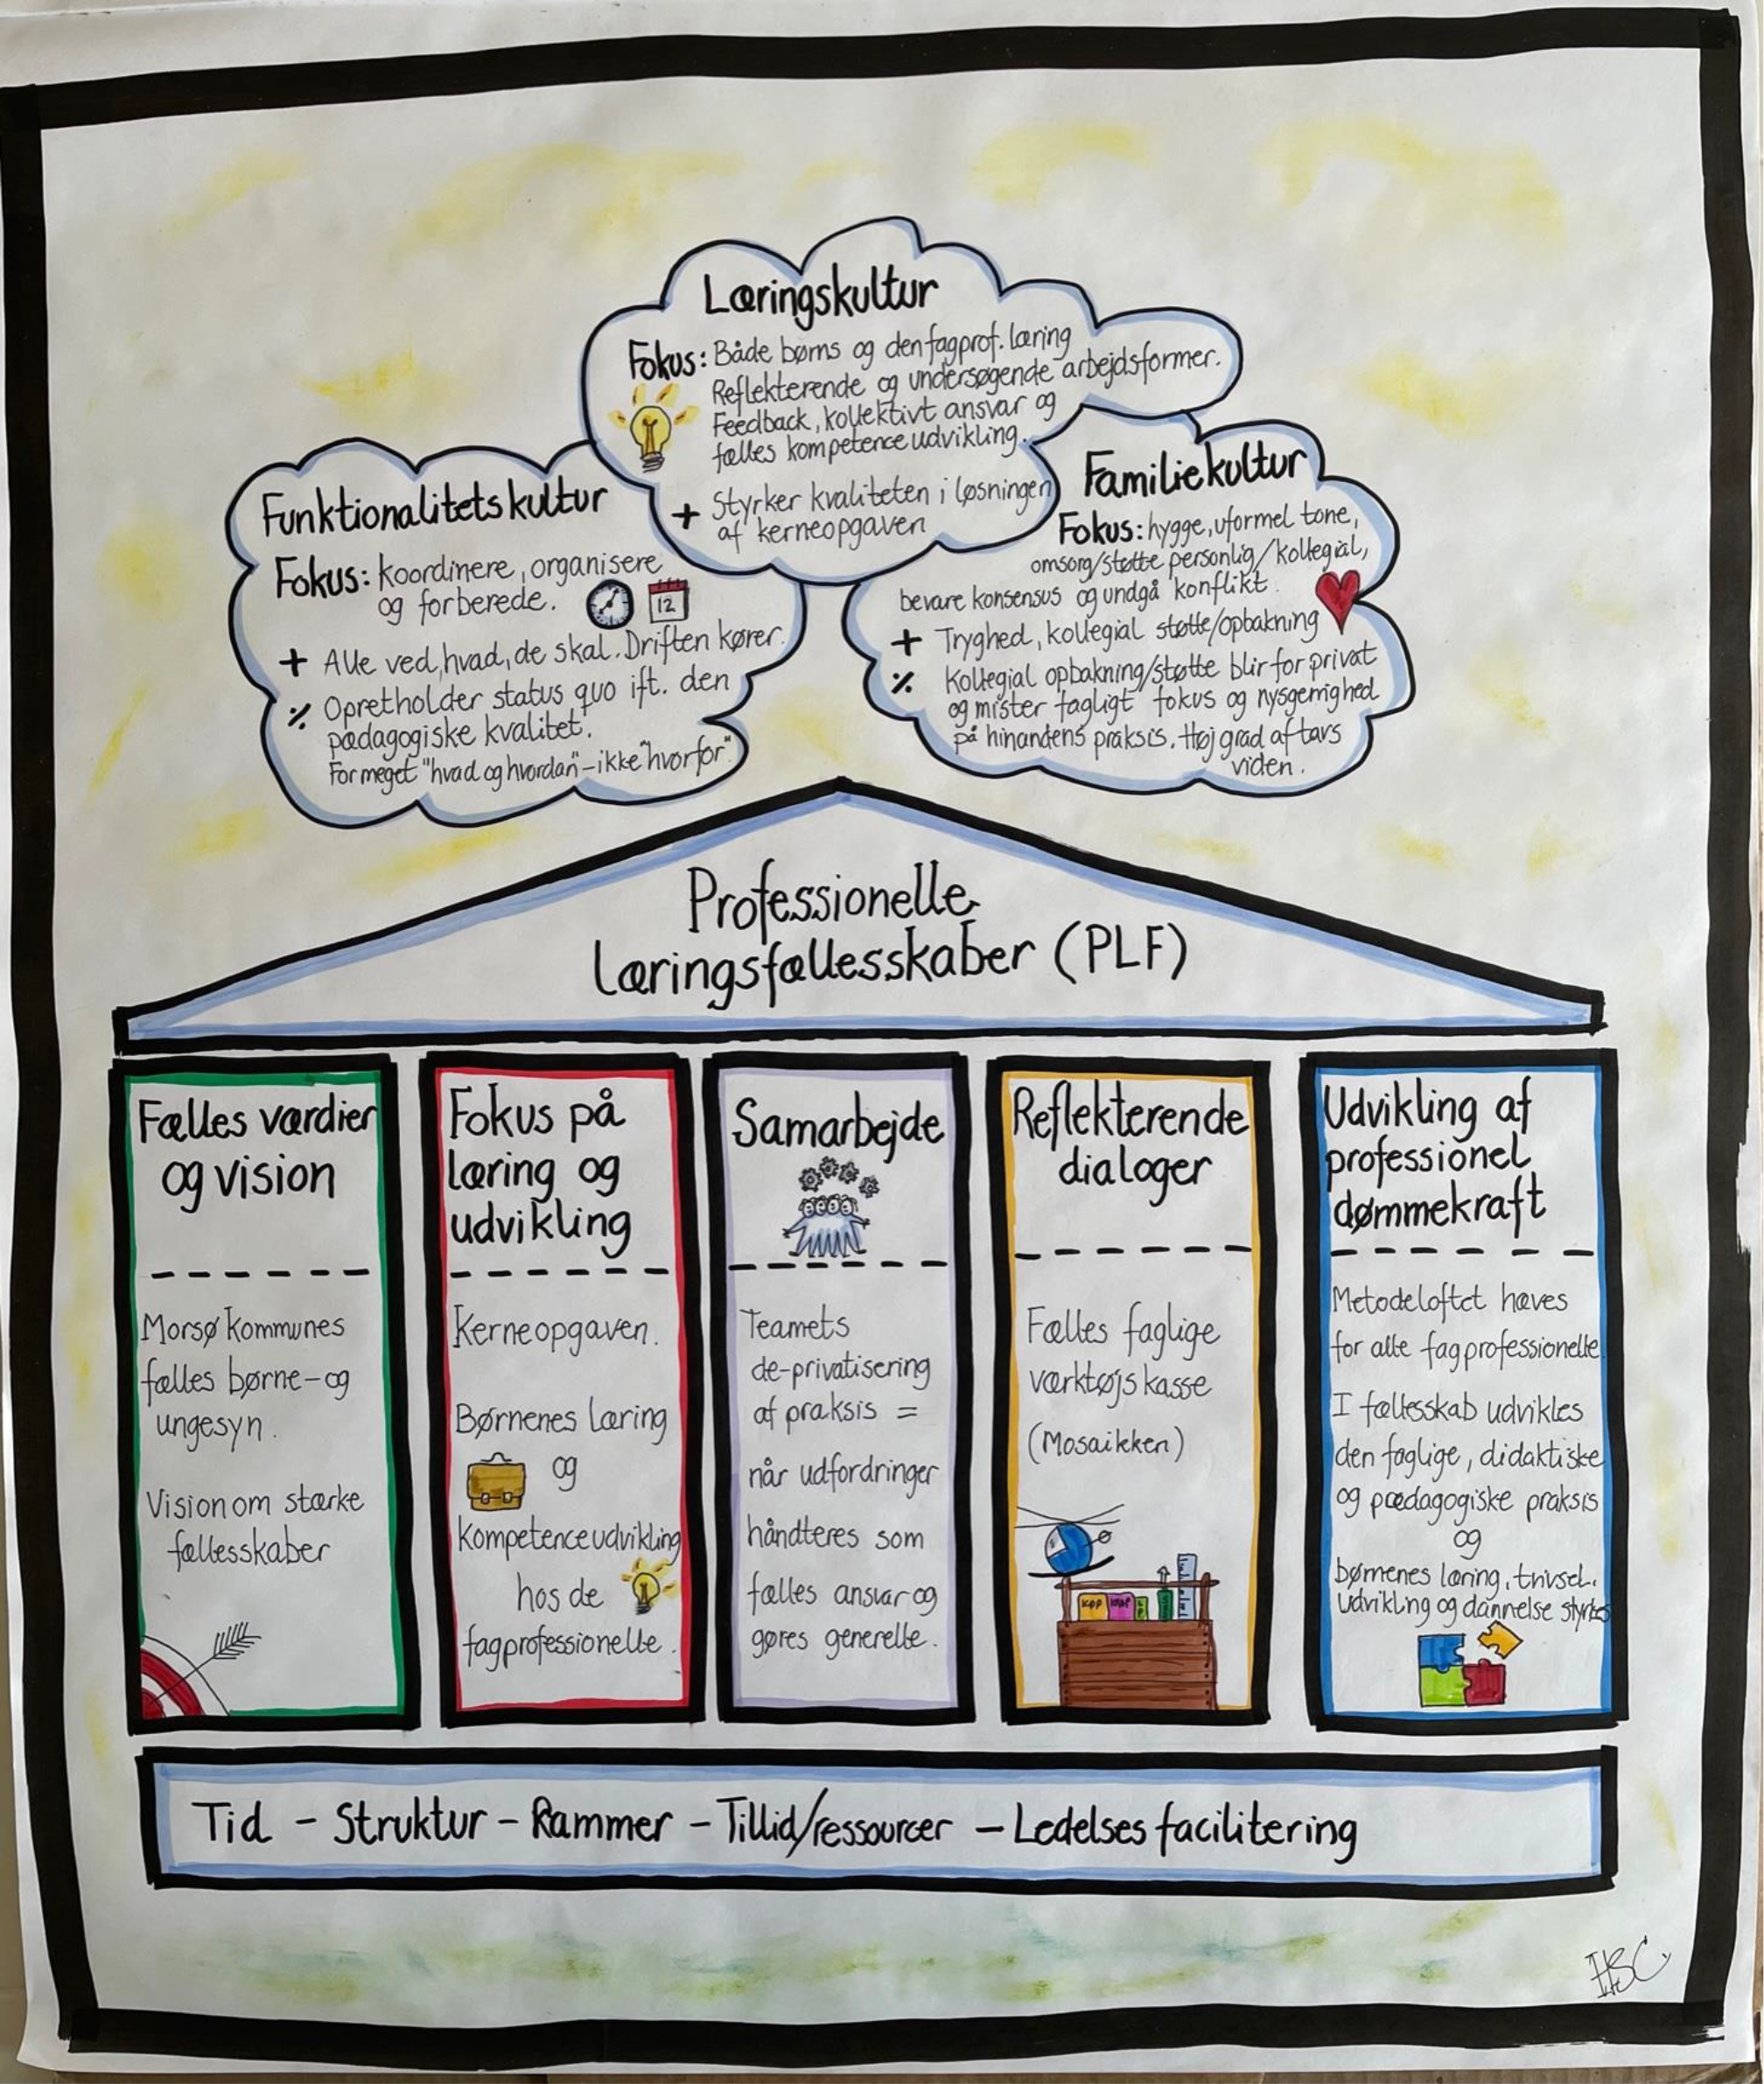 Læringskultur
Fokus: Både børns og den fagprof. læring
Reflekterende og undersøgende arbejdsformer.
Feedback, kollektivt ansvar og
fælles kompetenceudvikling.
+ Styrker kvaliteten i løsningen
af kerneopgaven
Funktionalitetskultur
Fokus: koordinere, organisere
og forberede.
12
+ Alle ved, hvad, de skal. Driften kører.
% Opretholder status quo ift. den
pædagogiske kvalitet.
For meget "hvad og hvordan" - ikke "hvorfor"
Familiekultur
Fokus: hygge, uformel tone,
omsorg/støtte personlig/kollegial,
bevare konsensus og undgå konflikt.
+ Tryghed, kollegial støtte/opbakning
% Kollegial opbakning/støtte blir for privat
og mister fagligt fokus og nysgerrighed
på hinandens praksis. Høj grad af tavs
viden.
Professionelle
læringsfællesskaber (PLF)
Fælles værdier
og vision
Morsø Kommunes
fælles børne- og
ungesyn.
Vision om stærke
fællesskaber
Fokus på
læring og
udvikling
Kerneopgaven.
Børnenes læring
og
kompetenceudvikling
hos de
fagprofessionelle.
Samarbejde
Teamets
de-privatisering
af praksis =
når udfordringer
håndteres som
fælles ansvar og
gøres generelle.
Reflekterende
dialoger
Fælles faglige
værktøjskasse
(Mosaikken)
Udvikling af
professionel
dømmekraft
Metodeloftet hæves
for alle fagprofessionelle
I fællesskab udvikles
den faglige, didaktiske
og pædagogiske praksis
og
børnenes læring, trivsel,
udvikling og dannelse styrkes
Tid - Struktur - Rammer - Tillid/ressourcer - Ledelses facilitering
HSC